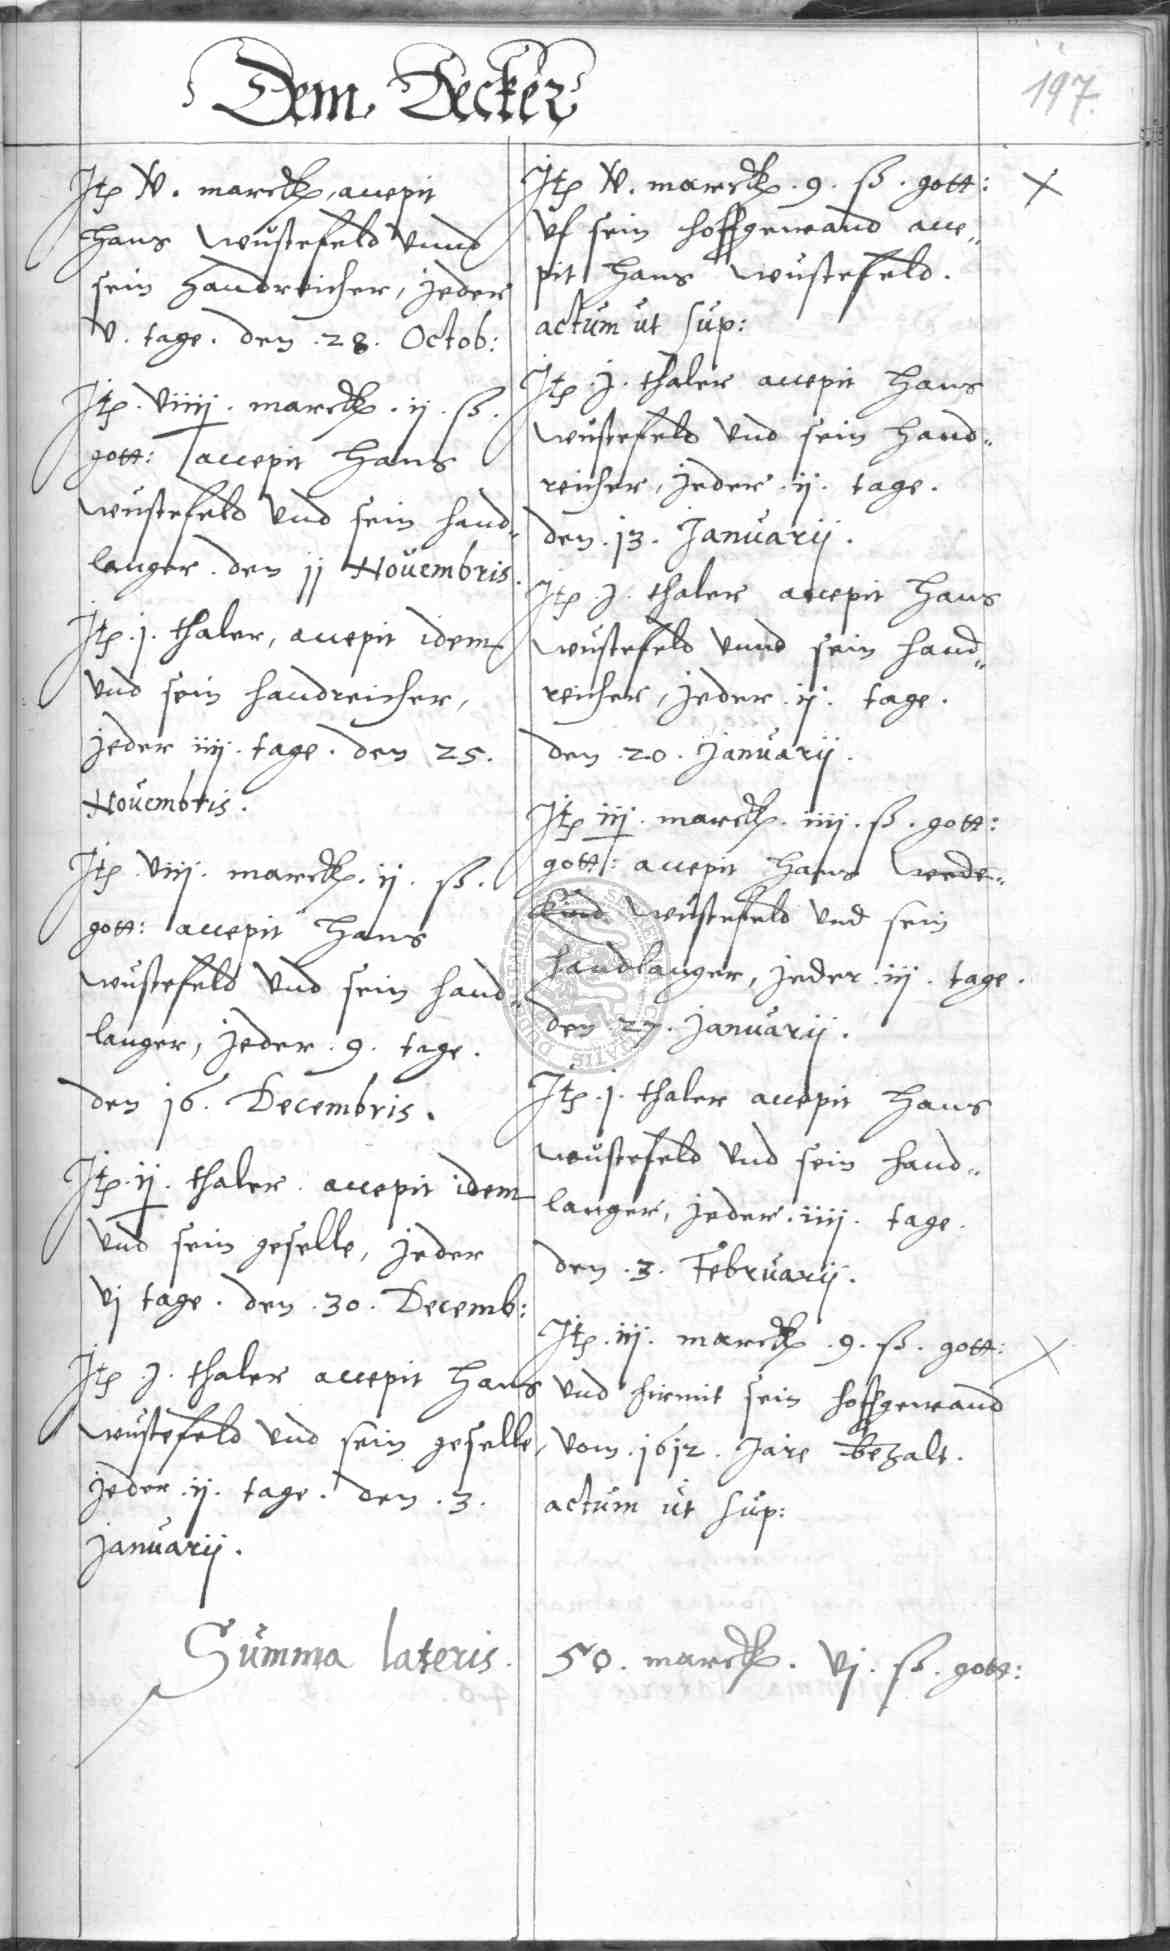 Dem Decker
197.
Itē V. marck, accepit
Hans Wüstefeld vnnd
sein handreicher, jeder
V. tage. den .28. Octob:
Itē. Viiij. marck. ij. ß.
gott: accepit Hans
Wüstefeld vnd sein hand„
langer. den jj Nouembris.
Itē. j. thaler, accepit idem
vnd sein handreicher,
jeder iiij. tage. den 25.
Nouembris.
Itē. Viij. marck. ij. ß.
gott: accepit Hans
Wüstefeld vnd sein hand„
langer, jeder .9. tage.
den 16. Decembris.
Itē. ij. thaler. accepit idem
vnd sein geselle, jeder
Vj tage. den .30. Decemb:
Itē .j. thaler accepit Hans
Wüstefeld vnd sein geselle,
jeder .ij. tage. den .3.
januarij.
Itē V. marck .9. ß. gott:
vf sein hoffgewand acce„
pit Hans Wüstefeld.
actum ut sup:
Itē .j. thaler accepit Hans
Wüstefeld vnd sein hand„
reicher, jeder .ij. tage.
den .13. Januarij.
Itē .j. thaler accepit Hans
Wüstefeld vnnd sein hand„
reicher, jeder .ij. tage.
den .20. januarij.
Itē iij. marck. iiij. ß. gott:
gott: accepit Hans Wede„
kind Wüstefeld vnd sein
handlanger, jeder .iij. tage.
den 27. januarij.
Itē .j. thaler accepit Hans
Wüstefeld vnd sein hand„
langer, jeder .iiij. tage.
den .3. Februarij.
Itē .iij. marck .9. ß. gott:
vnd hirmit sein hoffgewand
vom .1612. Jare bezalt.
actum ut sup:
Summa lateris. 50. marck. Vj. ß. gott: